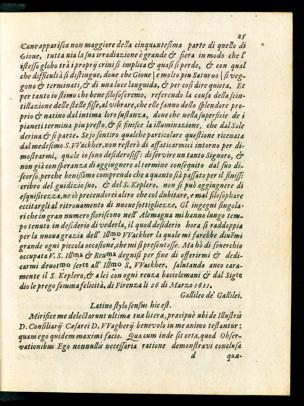 25
Cane apparisca non maggiore della cinquantesima parte di quello di
Gioue, tutta uia la sua irradiazione è grande & fiera in modo che l'
istesso globo trà i proprij crini si implica & quasi si perde, & con qual
che difficultà si distingue, doue che Gioue | e molto piu Saturno | si veg-
gono & terminati, & di una luce languida, & per così dire quieta. Et
per tanto istimo che bene filosoferemo, referendo la causa della scin-
tillazione delle stelle fisse, al vibrare, che elle fanno dello splendore pro-
prio & natino dal intima loro sustanza, doue che nella superficie de i
pianeti termina piu presto, & si finisce la illuminazione, che dal Sole
deriua & si parte. Se io sentiro qualche particolare questione ricenata
dal medesimo S. VVackher, non resterò di affaticarmici intorno per di-
mostrarmi, quale io sono desiderosiss: di seruire un tanto Signore, &
non già con speranza di aggiugnere al termine conseguito dal suo di-
scorso, perche benissimo comprendo che a quanto sia passato per il finiss:
cribro del guidizio suo, & del S. Keplero, non si può aggiungere di
esquisitezza, ne io pretenderei altro che col dubitare, e mal filosophare
eccitargli al ritrouamento di nuoue sottigliezze. Gl' ingegni singula-
ri che in gran numero floriscono nell' Alemagna mi hanno lungo tem-
po tenuto in desiderio di vederla, il qual desiderio hora si raddoppia
per la nuoua grazia dell' Illmo VVackher la quale mi farebbe diuenir
grande ogni piccola occasione, che mi si presentesse. Ma hò di souerchio
occupata V. S. Illma & Reuma degnisi per fine di offerirmi & dedi-
carmi deuotmo seruo all' Illmo S, VVackher, salutando anco cara-
mente il S. Keplero, & a lei con ogni reuza baciolemani & dal Sigre
dio le prego somma felicità, di Firenza li 26 di Marzo 1611.
Gallileo de' Gallilei.
Latino stylo sensus hic est.
Mirifice me delectarunt ultima tua litera, præcipuè ubi de Illustris
D. Consiliarij Cæsarei D. VVagherij benevolo in me animo testantur:
quam ego quidem maximi facio. Qua cum inde sit orta, quod Obser-
vationibus Ego nonnullis necessaria ratione demonstravi conclusa
d
quæ-